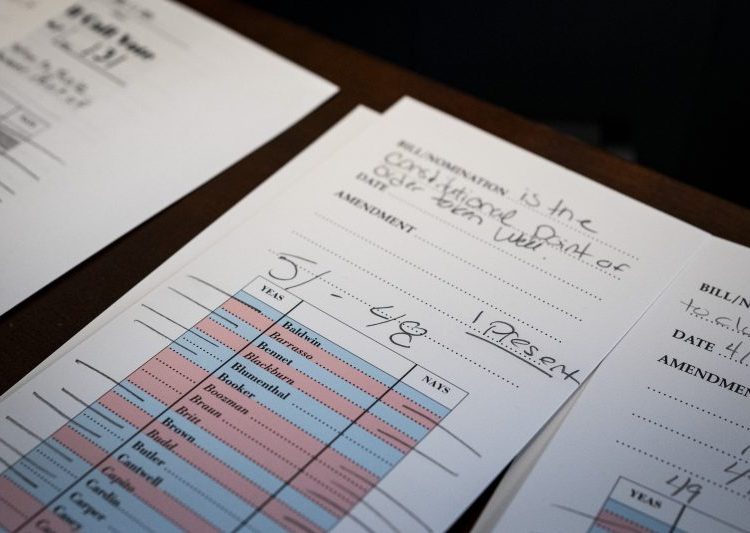 ll Call Vote
131
NAYS
BILL/NOMINATION is the
Constitutional Point of
Order taken well.
DATE
AMENDMENT
51 - 48 1 Present
YEAS NAYS
Baldwin
Barrasso
Bennet
Blackburn
Blumenthal
Booker
Boozman
Braun
Britt
Brown
Budd
Butler
Cantwell
Capito
Cardin
Carper
Casey
BILL/N
to
DATE 4/
AMENDMEN
49
YEAS
NAYS